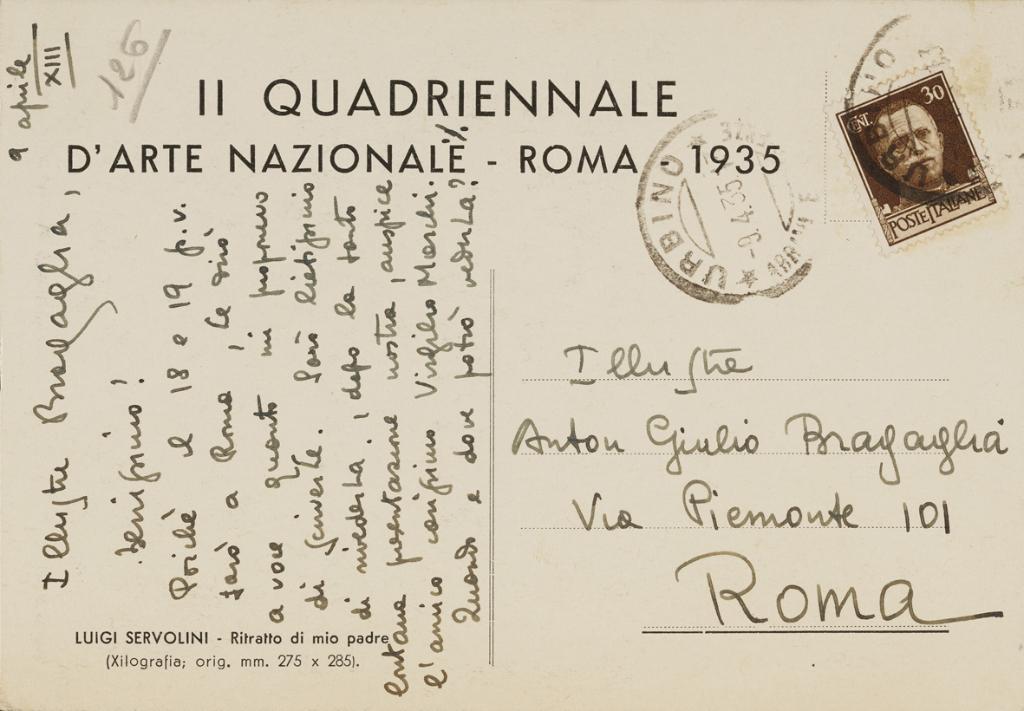 9 aprile
XIII
126
II QUADRIENNALE
D'ARTE NAZIONALE - ROMA - 1935
URBINO
9.4.35
CENT. 30
POSTE ITALIANE
Illustre Bragaglia,
benignino!
Poichè il 18 e 19 p.v.
sarò a Roma, Le dirò
a voce quanto mi proponevo
di scriverLe. Sarò lietissimo
di rivederLa, dopo la tanto
lontana presentazione nostra, auspice
l'amico Virgilio Marchi.
Quando e dove potrò vederLa?
LUIGI SERVOLINI - Ritratto di mio padre
(Xilografia; orig. mm. 275 x 285).
Illustre
Anton Giulio Bragaglia
Via Piemonte 101
ROMA